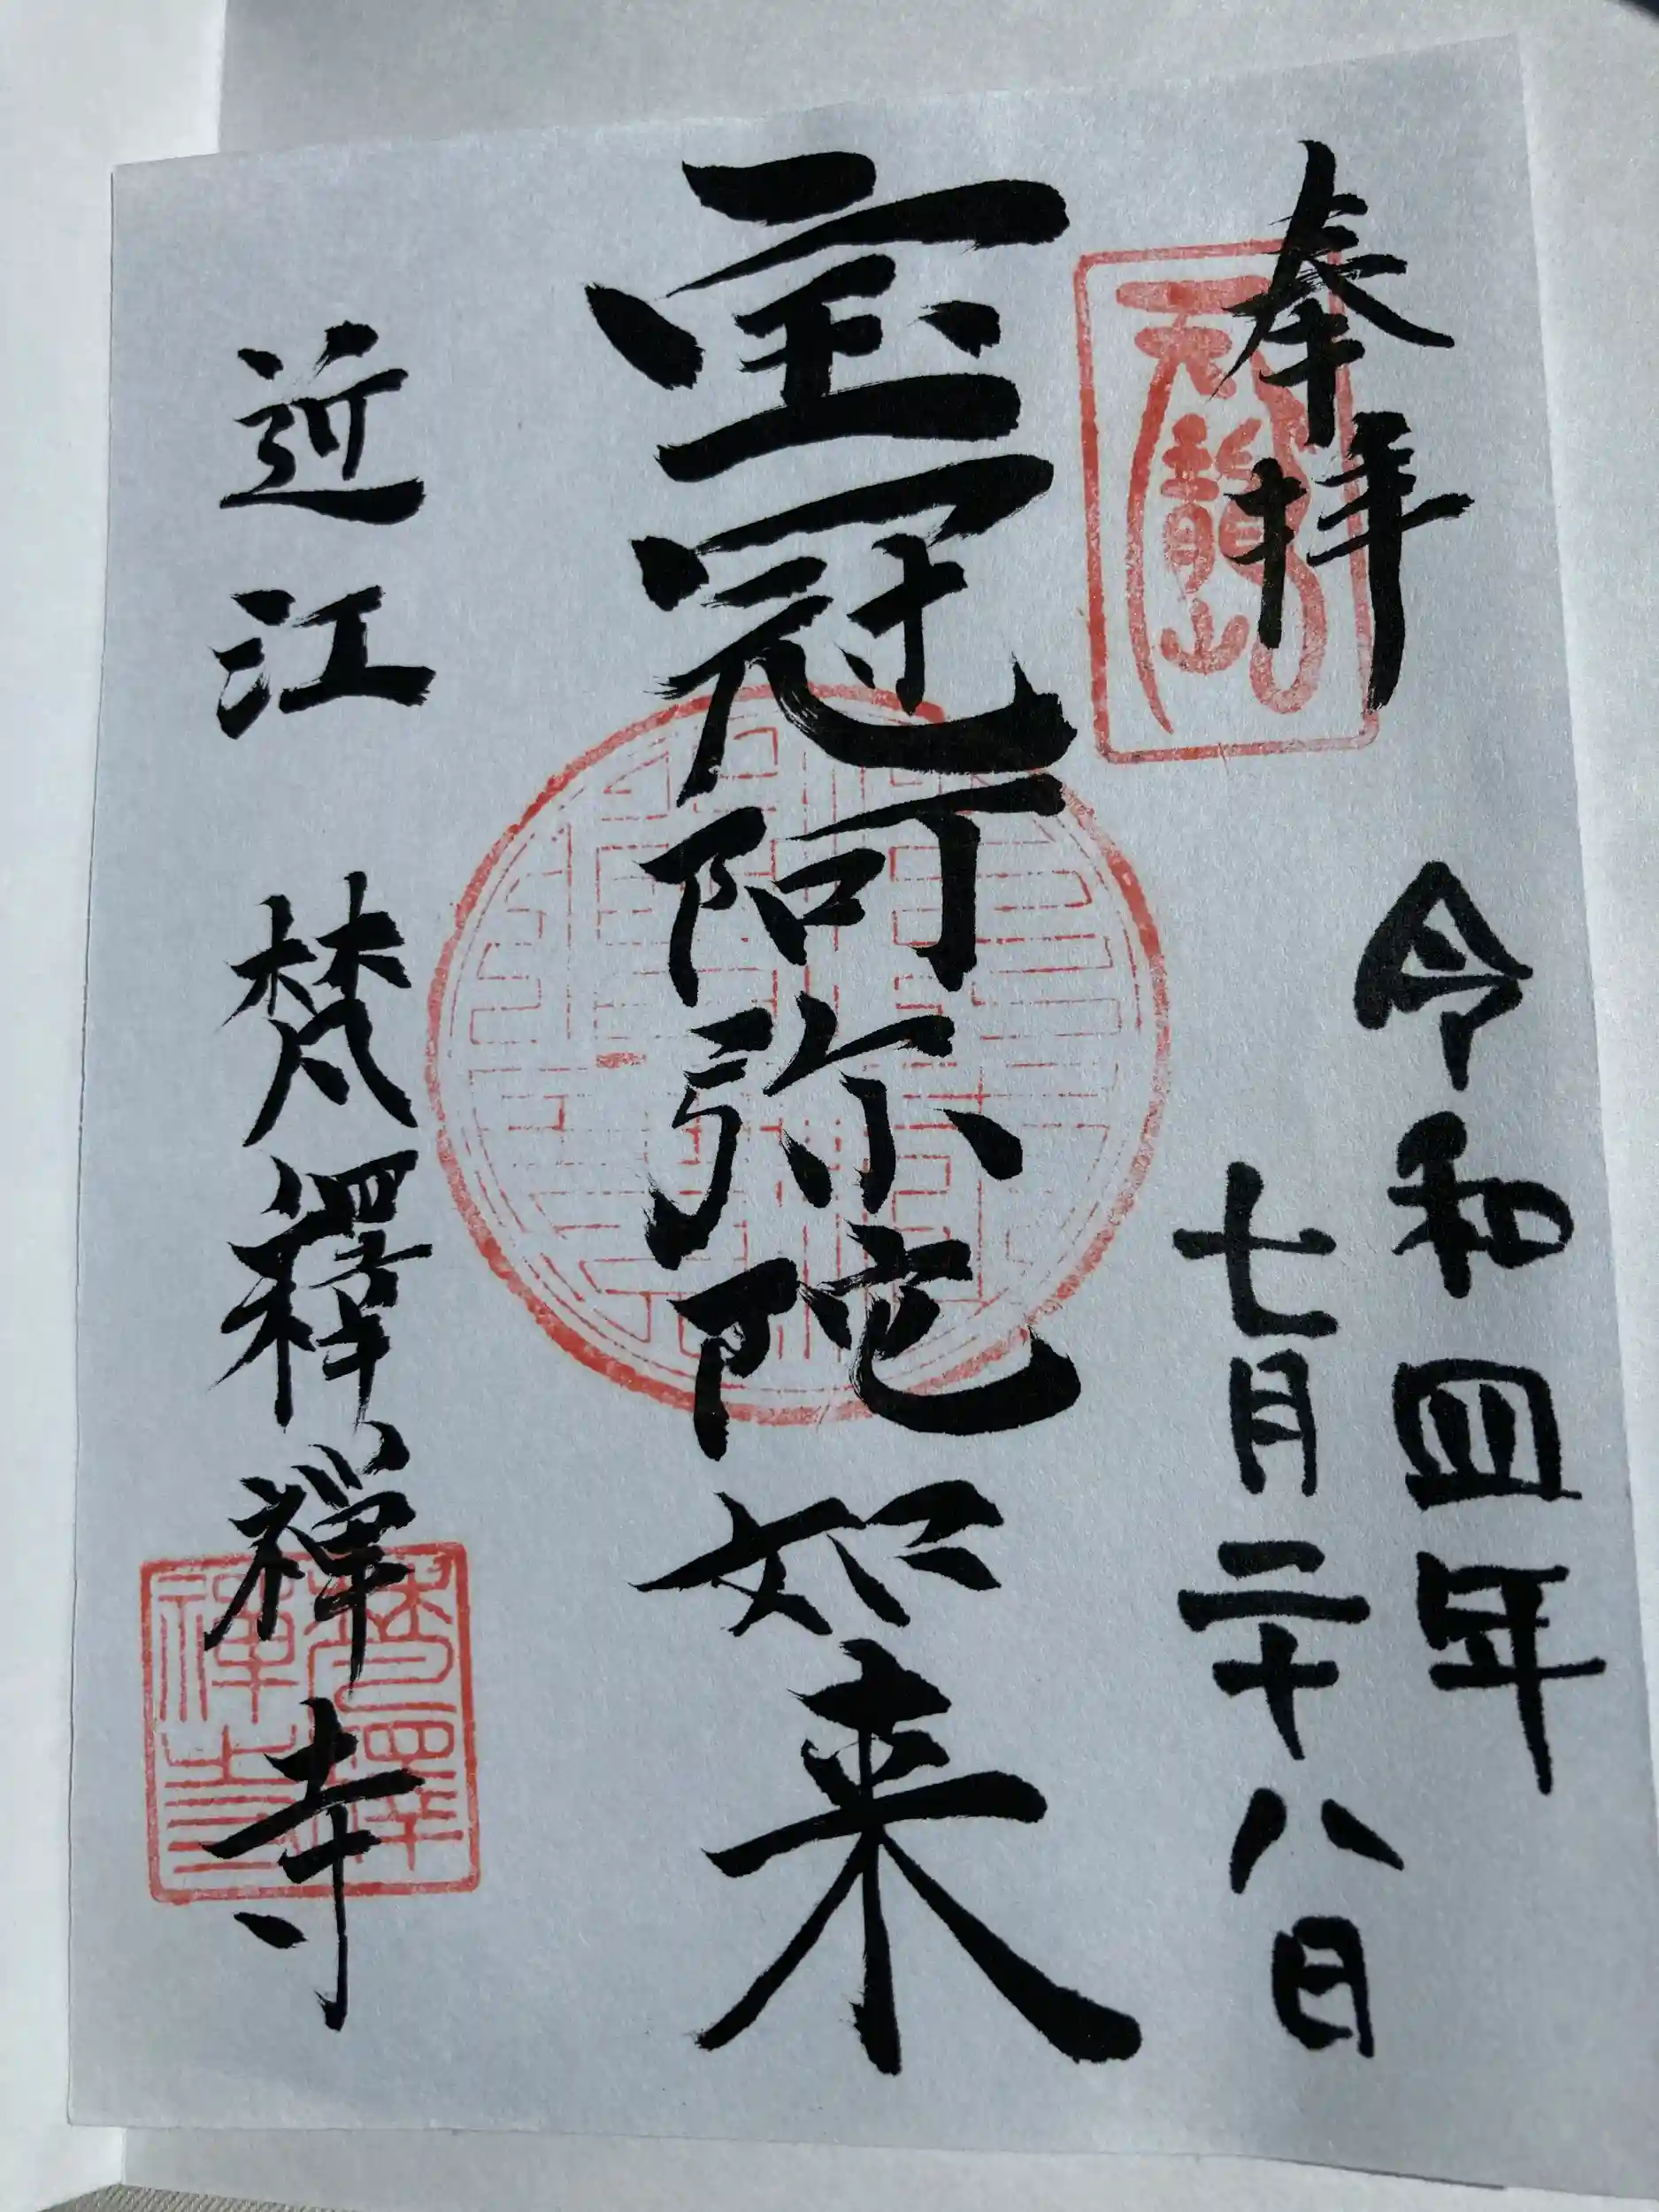 奉拝
天龍山
令和四年
七月二十八日
宝冠阿弥陀如来
近江 梵釋禅寺
梵釋
禅寺